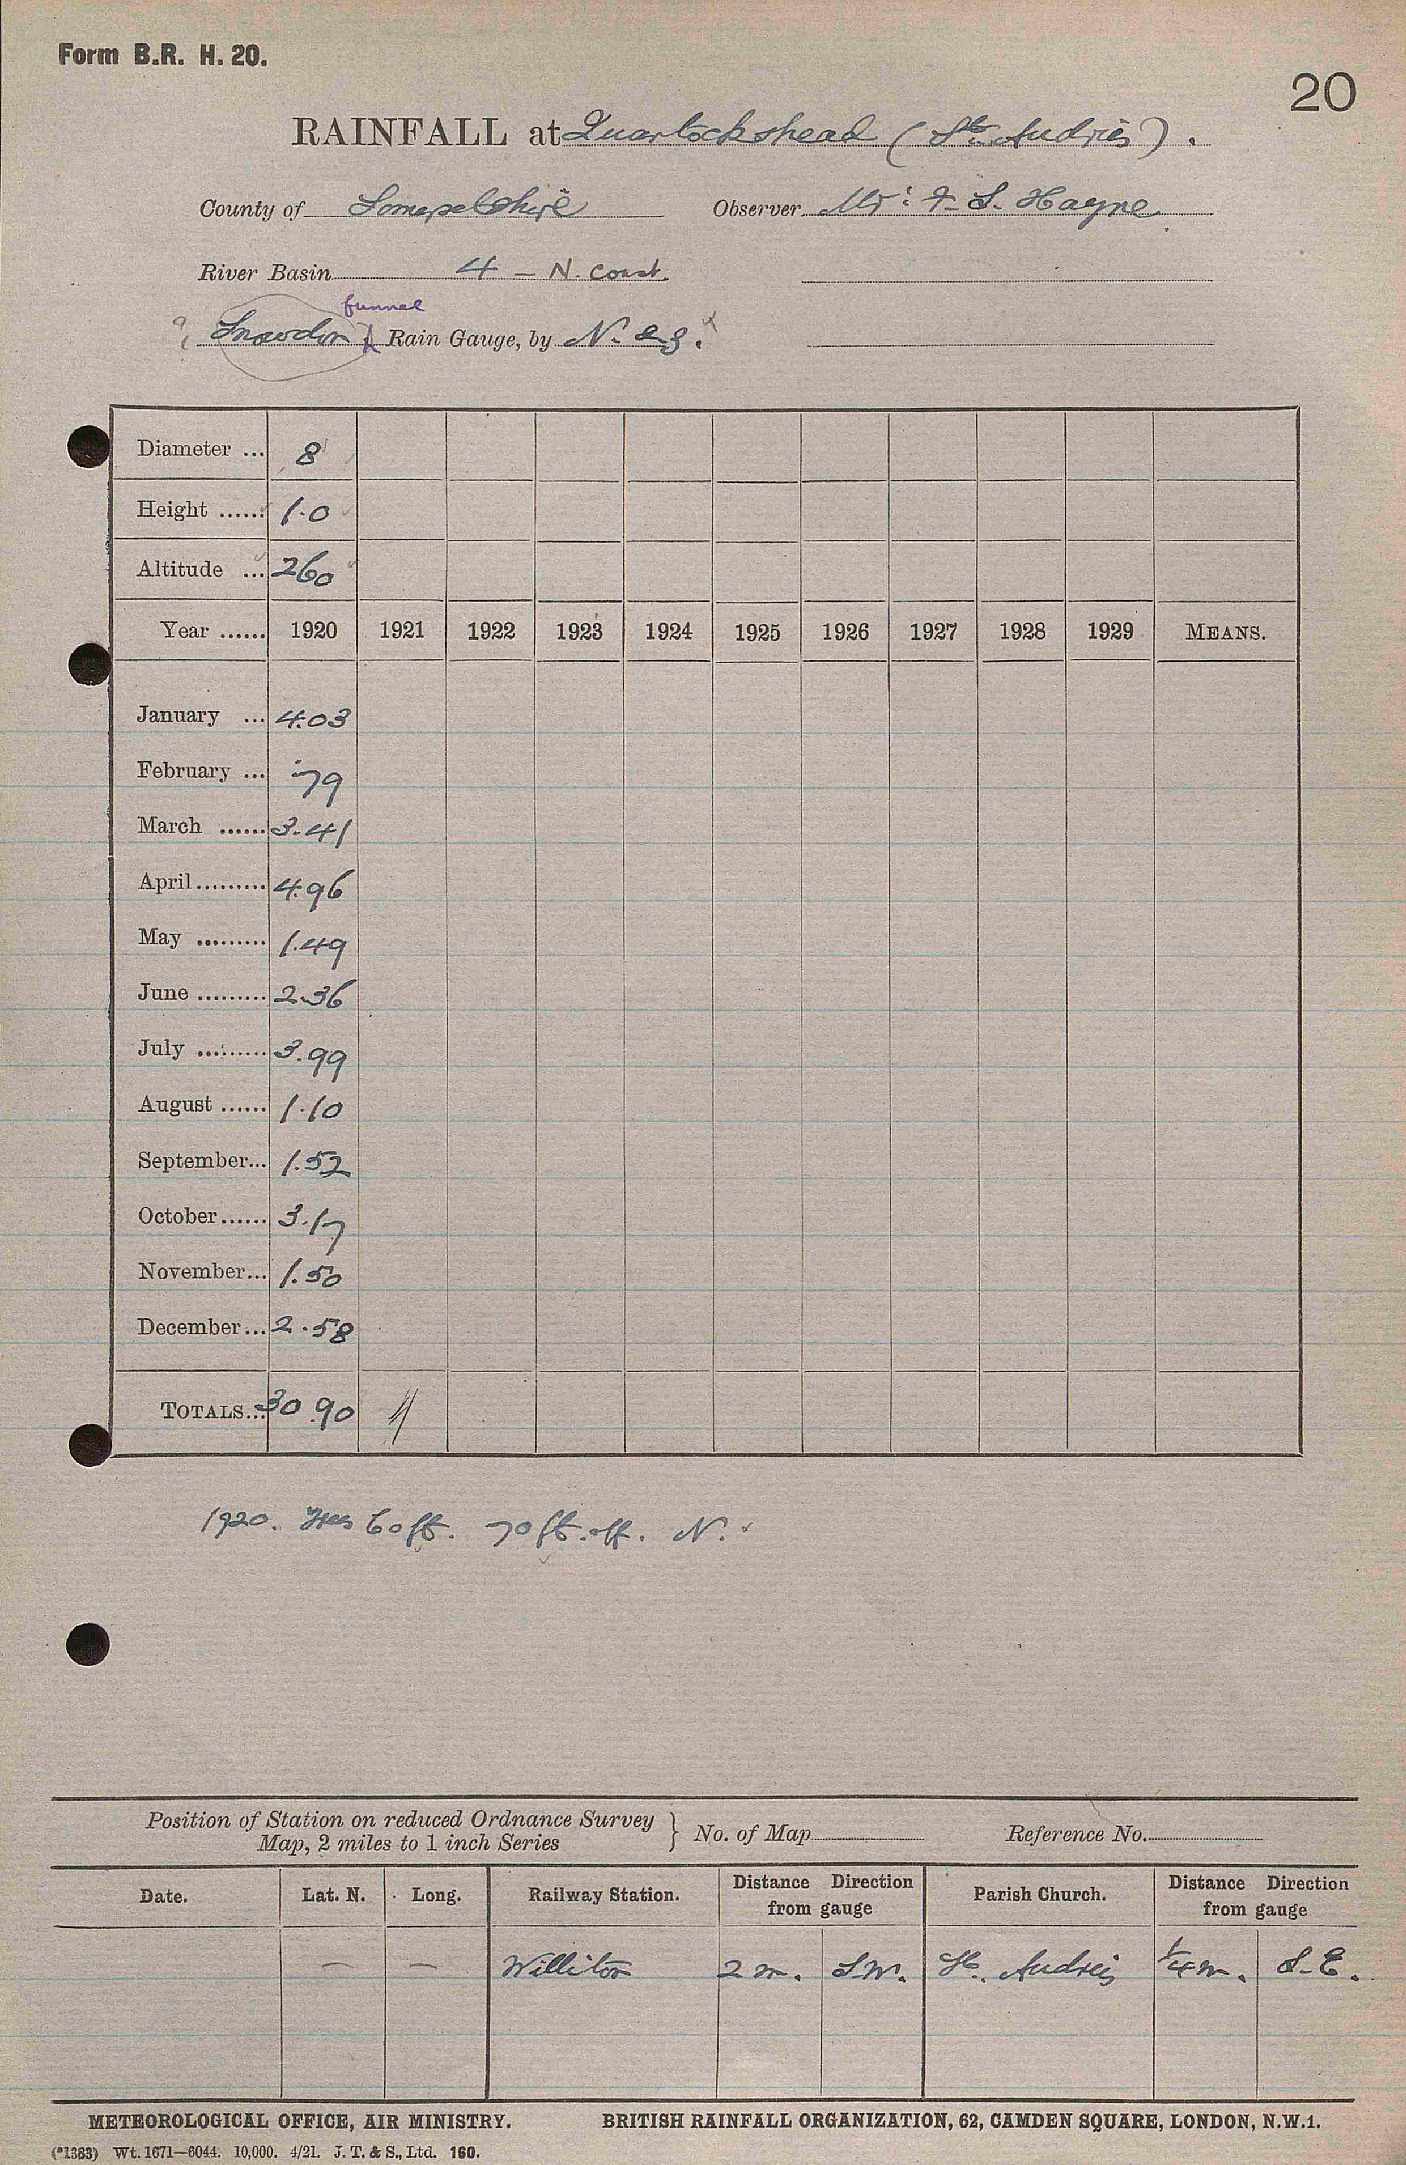 Form B.R. H. 20.
20
RAINFALL at Quantockshead (St. Audries).
County of Somersetshire Observer Mr. F. S. Hayne
River Basin 4 - N. Coast.
funnel
? Snowdon Rain Gauge, by N. & Z.
Diameter ... 8
Height ...... 1.0
Altitude ... 260
Year ...... 1920 1921 1922 1923 1924 1925 1926 1927 1928 1929 MEANS.
January ... 4.03
February ... .79
March ...... 3.41
April......... 4.96
May ......... 1.49
June ......... 2.36
July ......... 3.99
August ...... 1.10
September... 1.52
October...... 3.17
November... 1.50
December... 2.58
TOTALS... 30.90
1920. Trees 60 ft. 70 ft. off. N.
Position of Station on reduced Ordnance Survey
Map, 2 miles to 1 inch Series } No. of Map Reference No.
Date. Lat. N. Long. Railway Station. Distance Direction from gauge Parish Church. Distance Direction from gauge
— — Williton 2 m. S.W. St. Audries 1/4 m. S.E.
METEOROLOGICAL OFFICE, AIR MINISTRY. BRITISH RAINFALL ORGANIZATION, 62, CAMDEN SQUARE, LONDON, N.W.1.
(*1383) Wt. 1671—6044. 10,000. 4/21. J. T. & S., Ltd. 160.